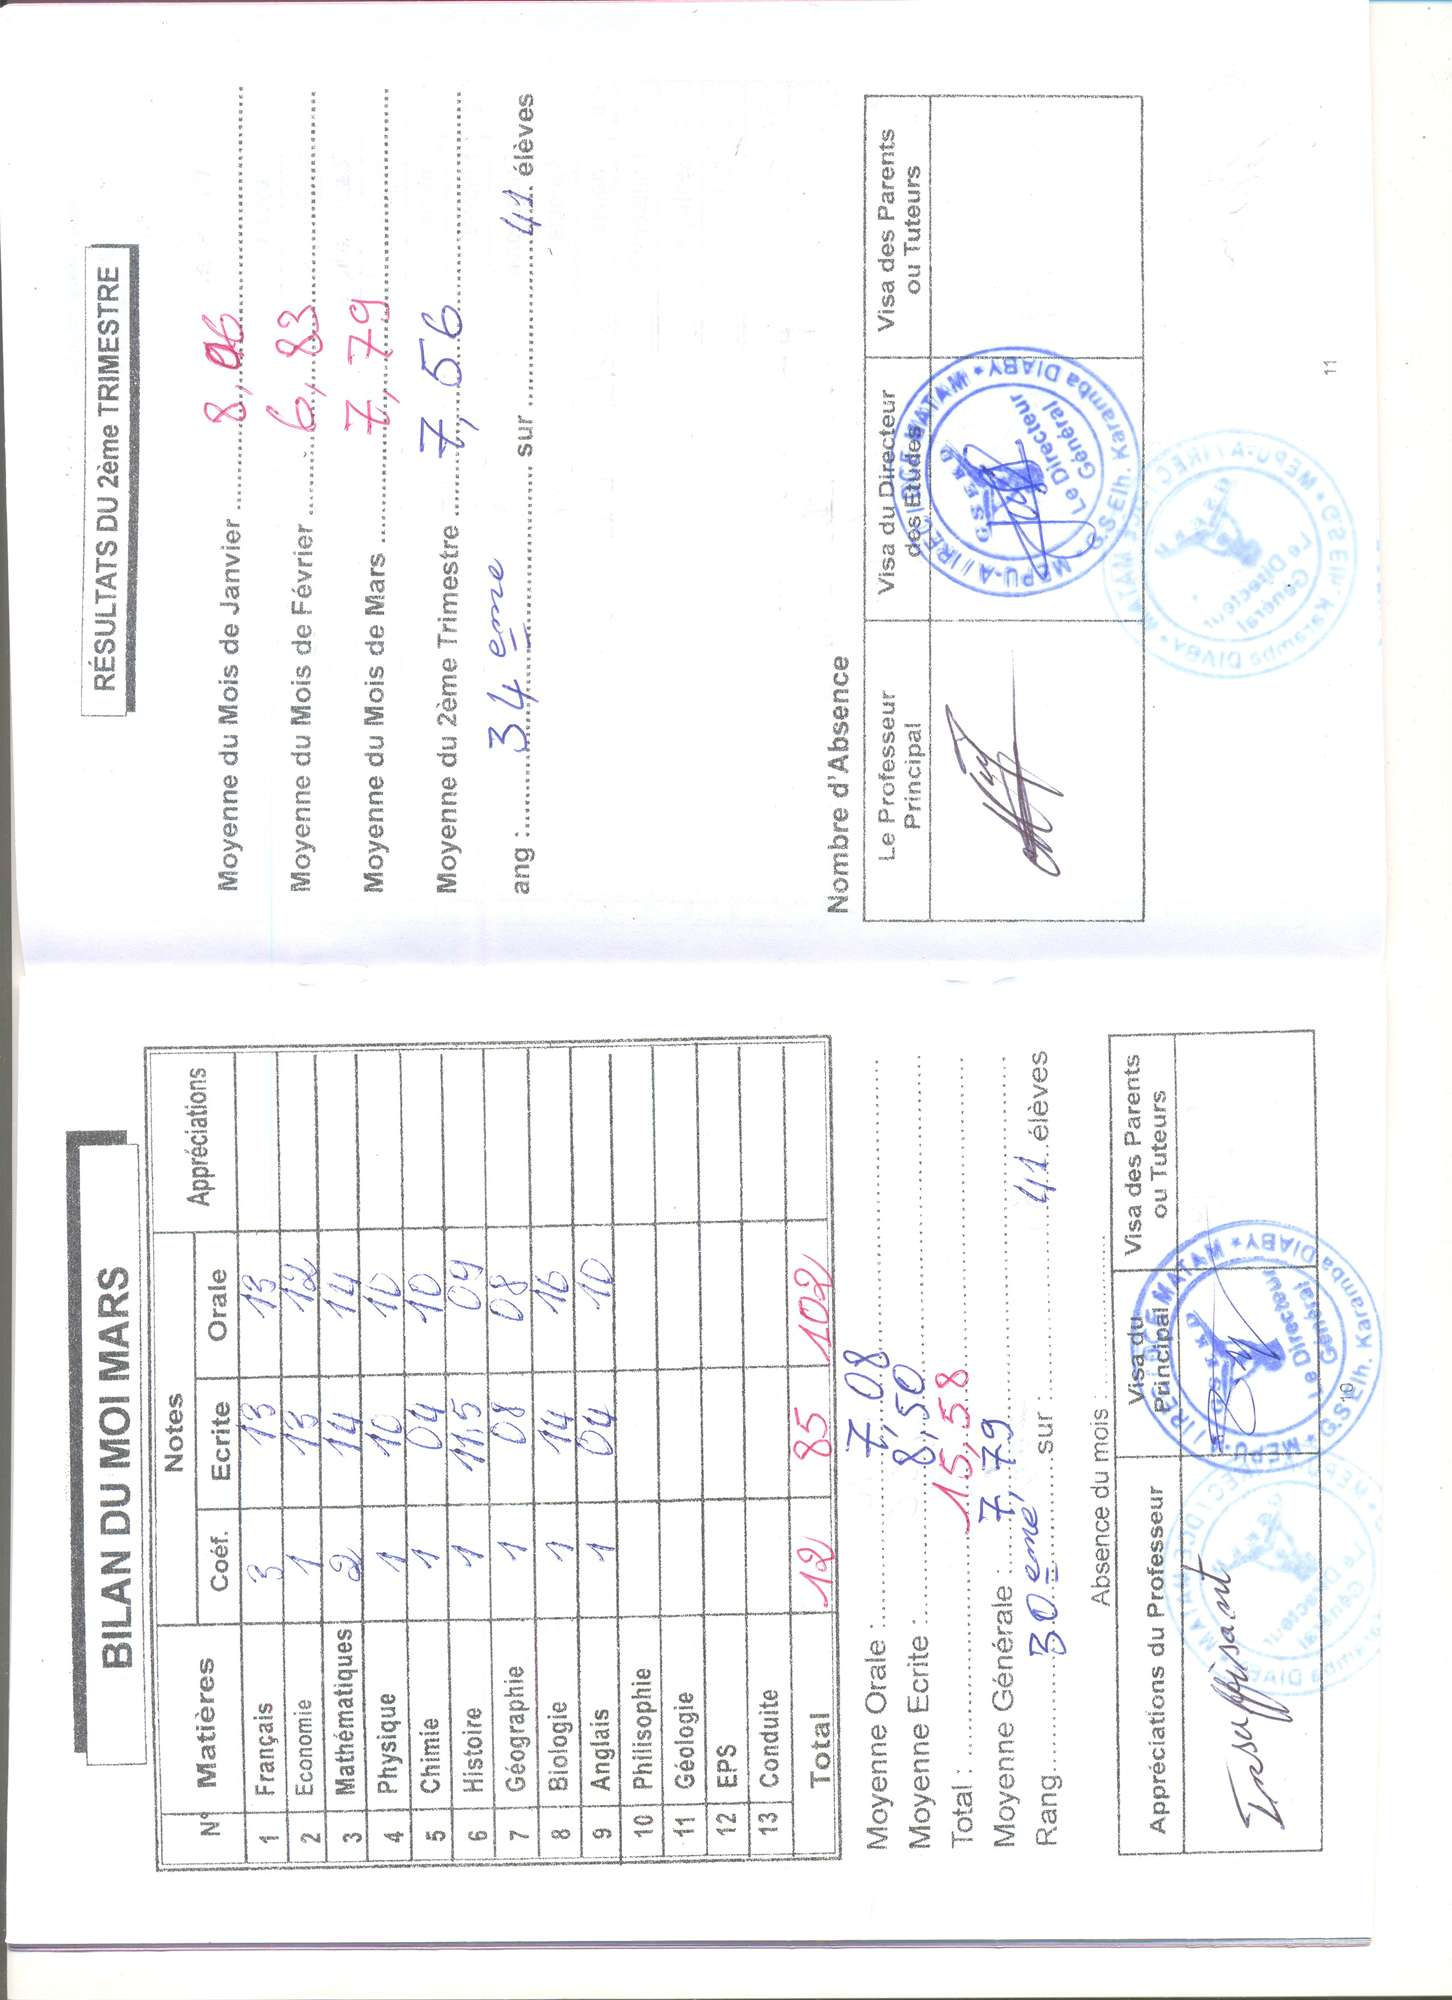 BILAN DU MOI MARS
N° Matières Notes Appréciations
Coéf. Ecrite Orale
1 Français 3 13 13
2 Economie 1 13 12
3 Mathématiques 2 14 14
4 Physique 1 10 10
5 Chimie 1 04 10
6 Histoire 1 11,5 09
7 Géographie 1 08 08
8 Biologie 1 14 16
9 Anglais 1 04 10
10 Philisophie
11 Géologie
12 EPS
13 Conduite
Total 12 85 102
Moyenne Orale : 7,08
Moyenne Ecrite : 8,50
Total : 15,58
Moyenne Générale : 7,79
Rang 30 eme sur 41 élèves
Absence du mois :
Appréciations du Professeur
Visa du Principal
Visa des Parents ou Tuteurs
Insuffisant
MEPU-A / IRE C / DCE MATAM * G.S Elh. Karamba DIABY *
G.S.E.K.D
Le Directeur
Général
10
RÉSULTATS DU 2ème TRIMESTRE
Moyenne du Mois de Janvier 8,06
Moyenne du Mois de Février 6,83
Moyenne du Mois de Mars 7,79
Moyenne du 2ème Trimestre 7,56
ang : 34 eme sur 41 élèves
Nombre d'Absence
Le Professeur Principal
Visa du Directeur des Etudes
Visa des Parents ou Tuteurs
MEPU-A / IRE C / DCE MATAM * G.S Elh. Karamba DIABY *
G.S.E.K.D
Le Directeur
Général
11